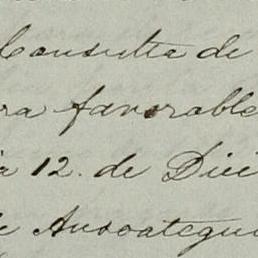 Consulta de
ra favorable
a 12. de Dici
e Ansoategui